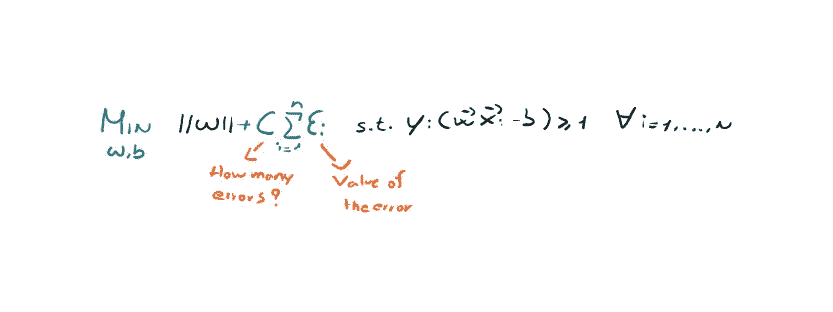 Min w,b ||w|| + C Σ i=1 n ξi s.t. yi (w⃗ x⃗i - b) ≥ 1 ∀ i=1,...,n
How many errors?
Value of the error